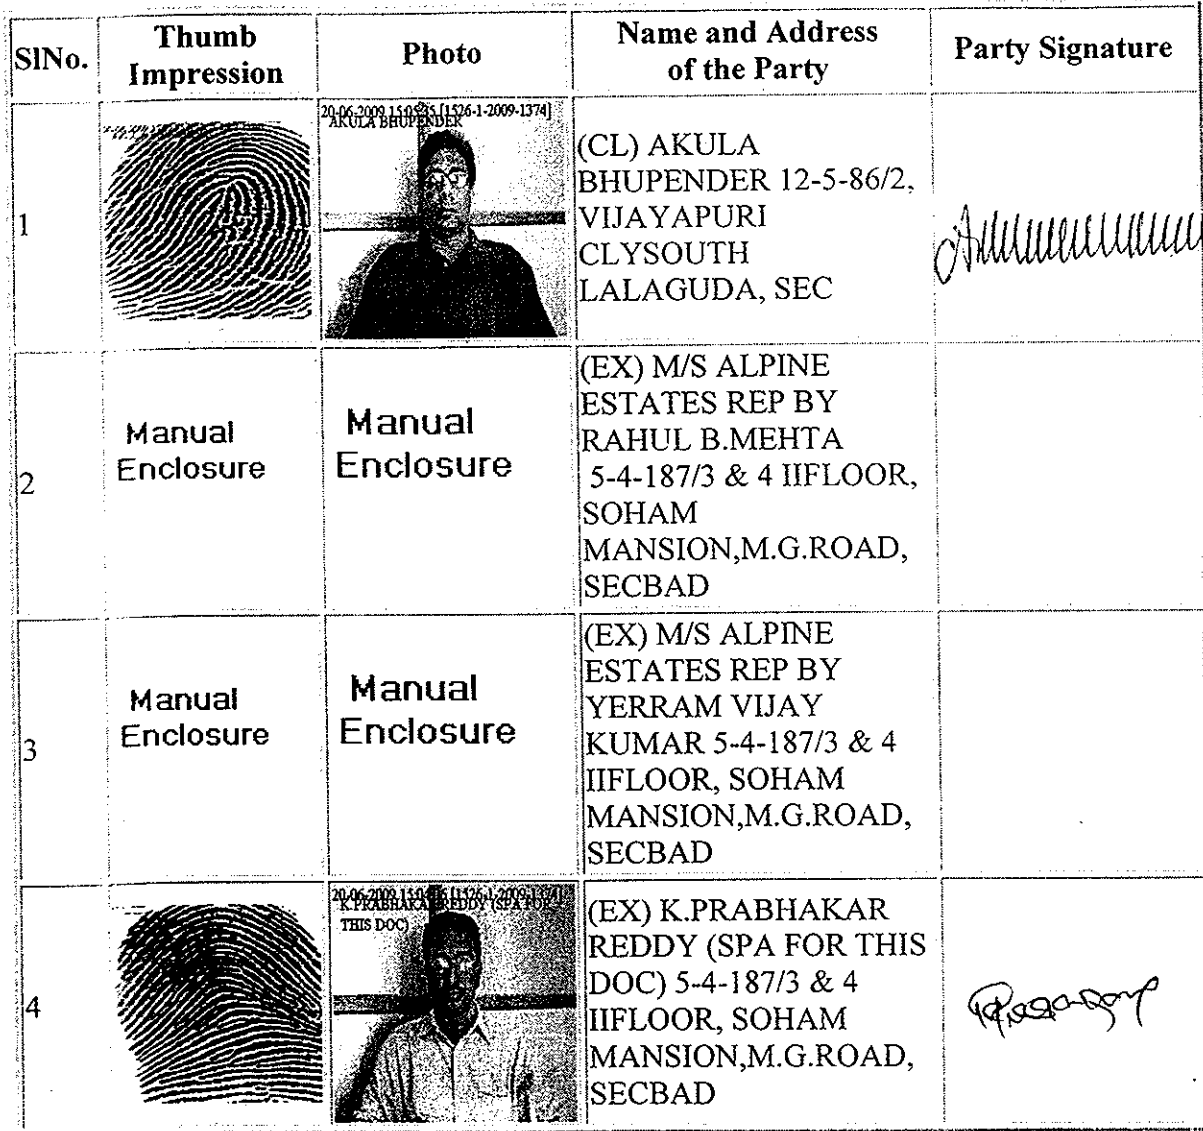 SlNo.
Thumb
Impression
Photo
Name and Address
of the Party
Party Signature
1
20-06-2009 15:05:35 [1526-1-2009-1374]
AKULA BHUPENDER
(CL) AKULA
BHUPENDER 12-5-86/2,
VIJAYAPURI
CLYSOUTH
LALAGUDA, SEC
2
Manual
Enclosure
Manual
Enclosure
(EX) M/S ALPINE
ESTATES REP BY
RAHUL B.MEHTA
5-4-187/3 & 4 IIFLOOR,
SOHAM
MANSION,M.G.ROAD,
SECBAD
3
Manual
Enclosure
Manual
Enclosure
(EX) M/S ALPINE
ESTATES REP BY
YERRAM VIJAY
KUMAR 5-4-187/3 & 4
IIFLOOR, SOHAM
MANSION,M.G.ROAD,
SECBAD
4
20-06-2009 [1526-1-2009-1374]
K.PRABHAKAR REDDY (SPA FOR
THIS DOC)
(EX) K.PRABHAKAR
REDDY (SPA FOR THIS
DOC) 5-4-187/3 & 4
IIFLOOR, SOHAM
MANSION,M.G.ROAD,
SECBAD